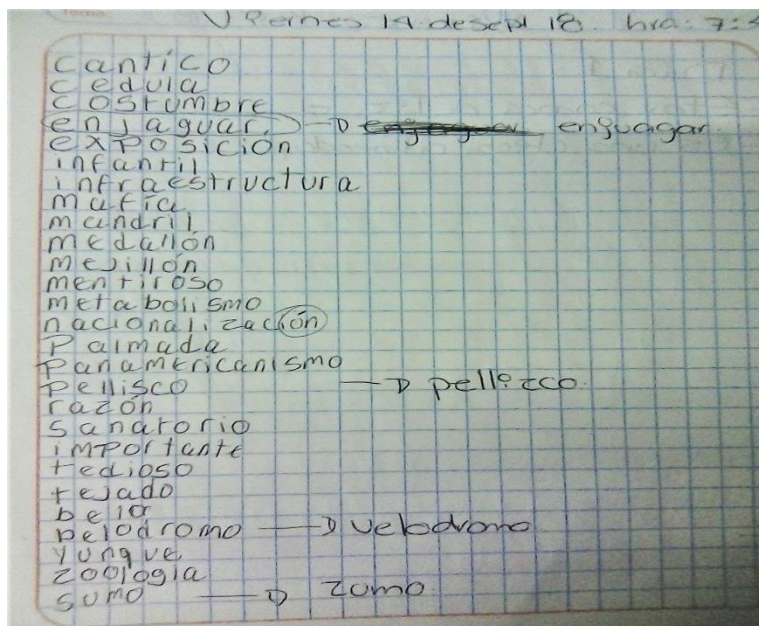 Viernes 14 de sept 18. hra: 7:
cantico
cedula
costumbre
enjaguar. → enjuagar.
exposicion
infantil
infraestructura
mafia
mandril
medallón
mejillón
mentiroso
metabolismo
nacionalización
Palmada
Panamericanismo
Pellisco → pellizco.
razón
sanatorio
importante
tedioso
tejado
belor
belodromo → velodromo
yunque
zoologia
sumo → zumo.